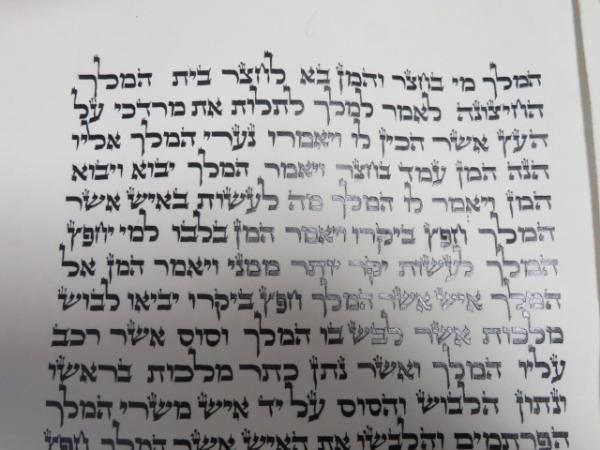 המלך מי בחצר והמן בא לחצר בית המלך
החיצונה לאמר למלך לתלות את מרדכי על
העץ אשר הכין לו ויאמרו נערי המלך אליו
הנה המן עמד בחצר ויאמר המלך יבוא ויבוא
המן ויאמר לו המלך מה לעשות באיש אשר
המלך חפץ ביקרו ויאמר המן בלבו למי יחפץ
המלך לעשות יקר יותר ממני ויאמר המן אל
המלך איש אשר המלך חפץ ביקרו יביאו לבוש
מלכות אשר לבש בו המלך וסוס אשר רכב
עליו המלך ואשר נתן כתר מלכות בראשו
ונתון הלבוש והסוס על יד איש משרי המלך
הפרתמים והלבשו את האיש אשר המלך חפץ